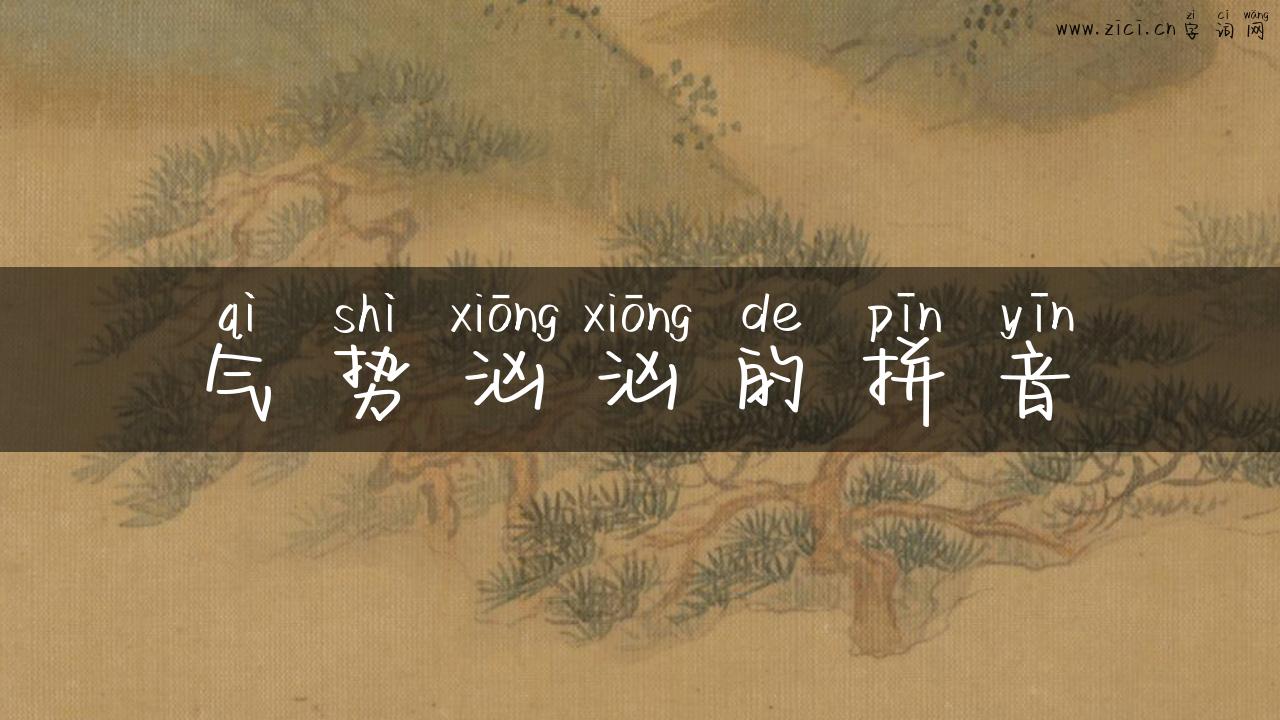 zì cí wǎng
www.zici.cn 字词网
qì shì xiōng xiōng de pīn yīn
气势汹汹的拼音